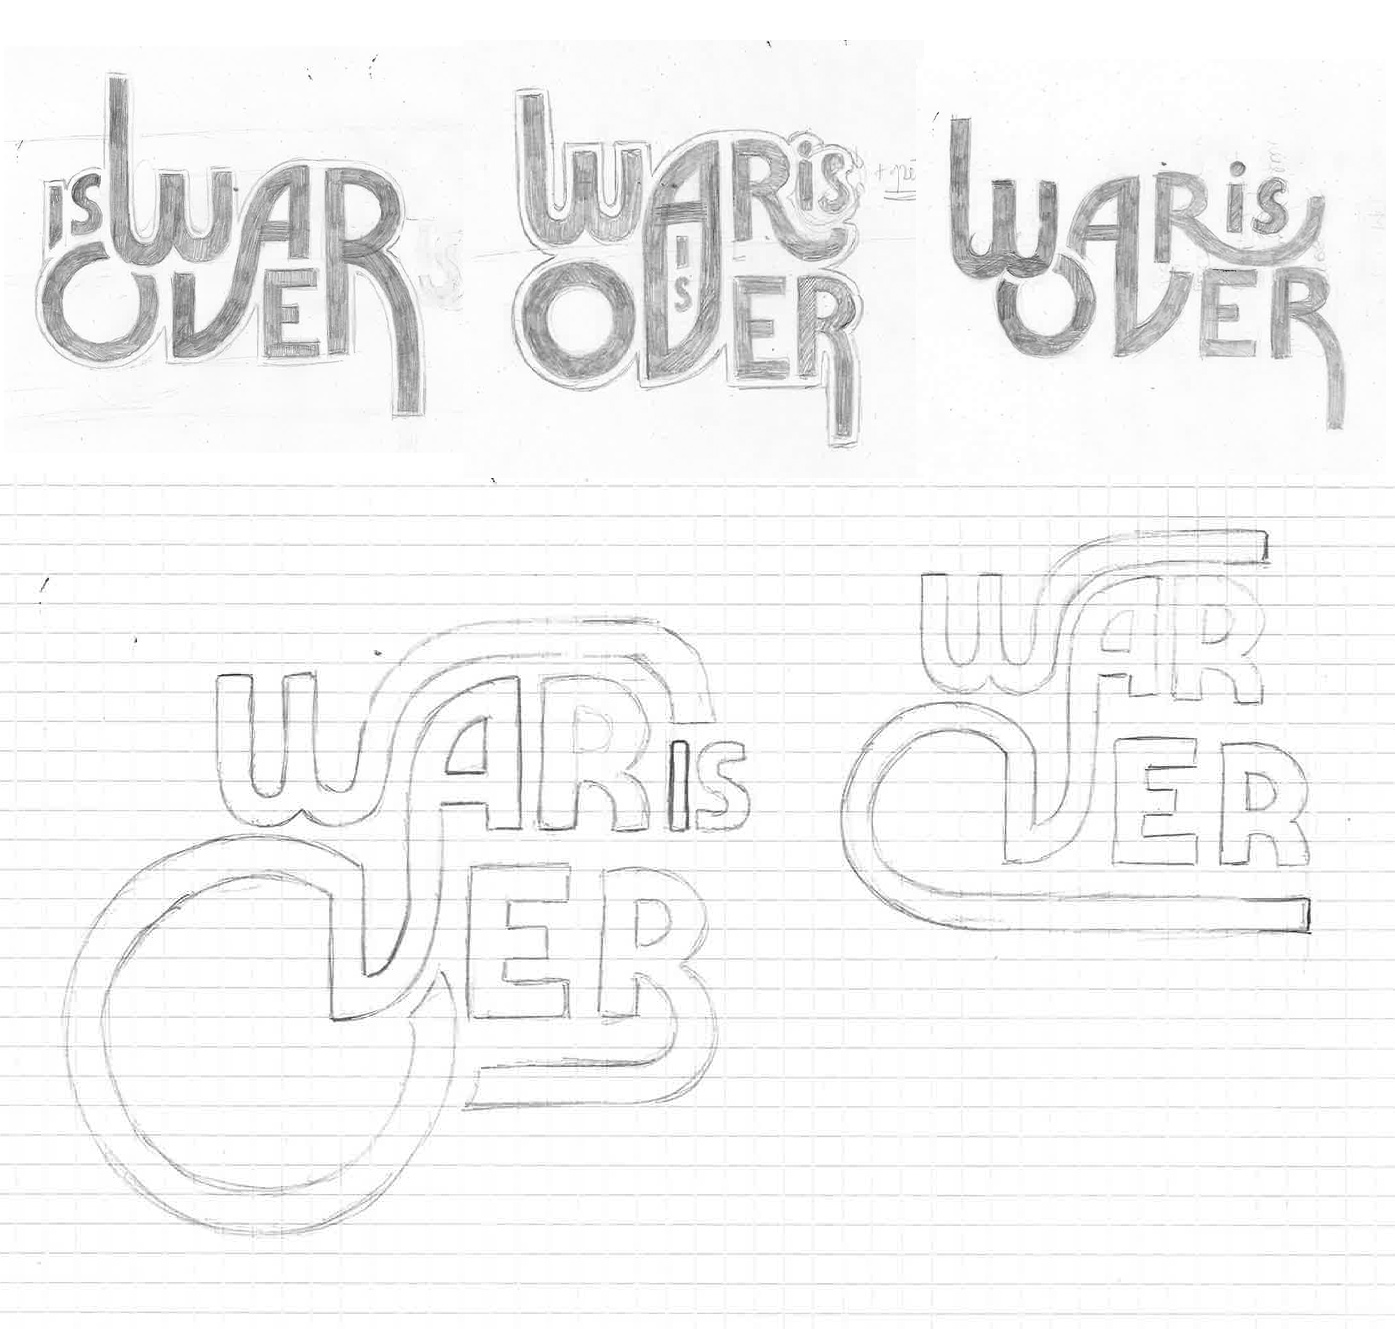 IS WAR
OVER
WAR is
IS
OVER
WAR is
OVER
WAR IS
OVER
WAR
OVER